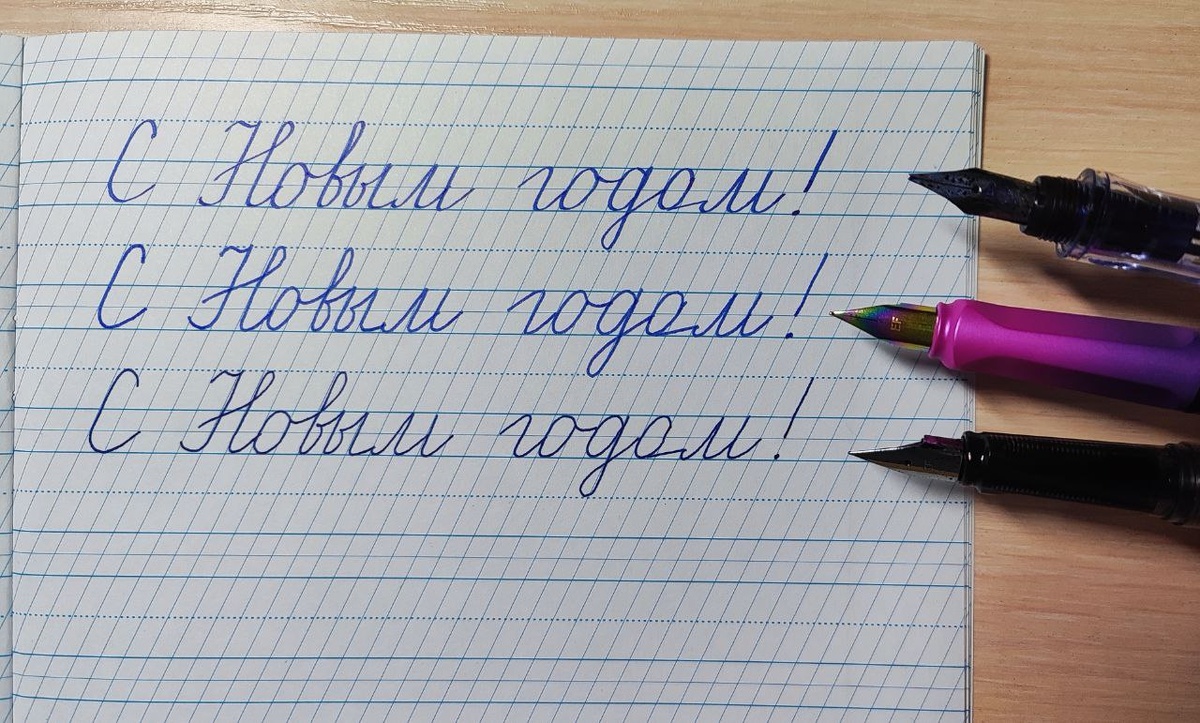 С Новым годом!
С Новым годом!
EF
С Новым годом!